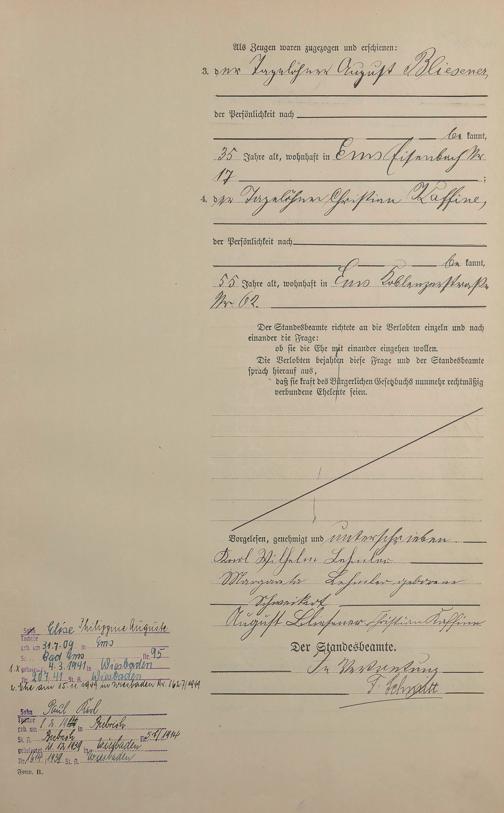 Als Zeugen waren zugezogen und erschienen:
3. der Tagelöhner August Bliesener,
der Persönlichkeit nach
be kannt,
35 Jahre alt, wohnhaft in Ems Eisenbach Nr
17 ;
4. der Tagelöhner Christian Kaffine,
der Persönlichkeit nach
be kannt,
55 Jahre alt, wohnhaft in Ems Koblenzerstraße
Nr 62.
Der Standesbeamte richtete an die Verlobten einzeln und nach
einander die Frage:
ob sie die Ehe mit einander eingehen wollen.
Die Verlobten bejahten diese Frage und der Standesbeamte
sprach hierauf aus,
daß sie kraft des Bürgerlichen Gesetzbuchs nunmehr rechtmäßig
verbundene Eheleute seien.
Vorgelesen, genehmigt und unterschrieben.
Karl Wilhelm Lehmler
Margareta Lehmler geborene
Schweikert
August Bliesener Christian Kaffine
Der Standesbeamte.
In Vertretung
F. Schmitt
Elise Philippine Auguste
Tochter
geb. am 31.7.09 in Ems
Bad Ems Nr. 95
4.3.1941 in Wiesbaden
Nr. 207.41 St. A. Wiesbaden
2. Ehe am 15.11.1949 in Wiesbaden Nr. 1627/1949
Sohn Paul Karl
Tochter
geb. am 1.2. in Biebrich
St. A. Biebrich Nr.
geheiratet 21.12.1939 in Wiesbaden
Nr. 1939 St. A. Wiesbaden
Form. B.